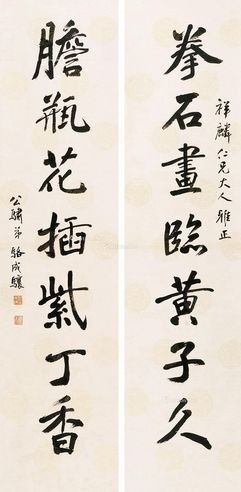 祥麟仁兄大人雅正
拳石畫臨黃子久
膽瓶花插紫丁香
公驌弟駱成驤